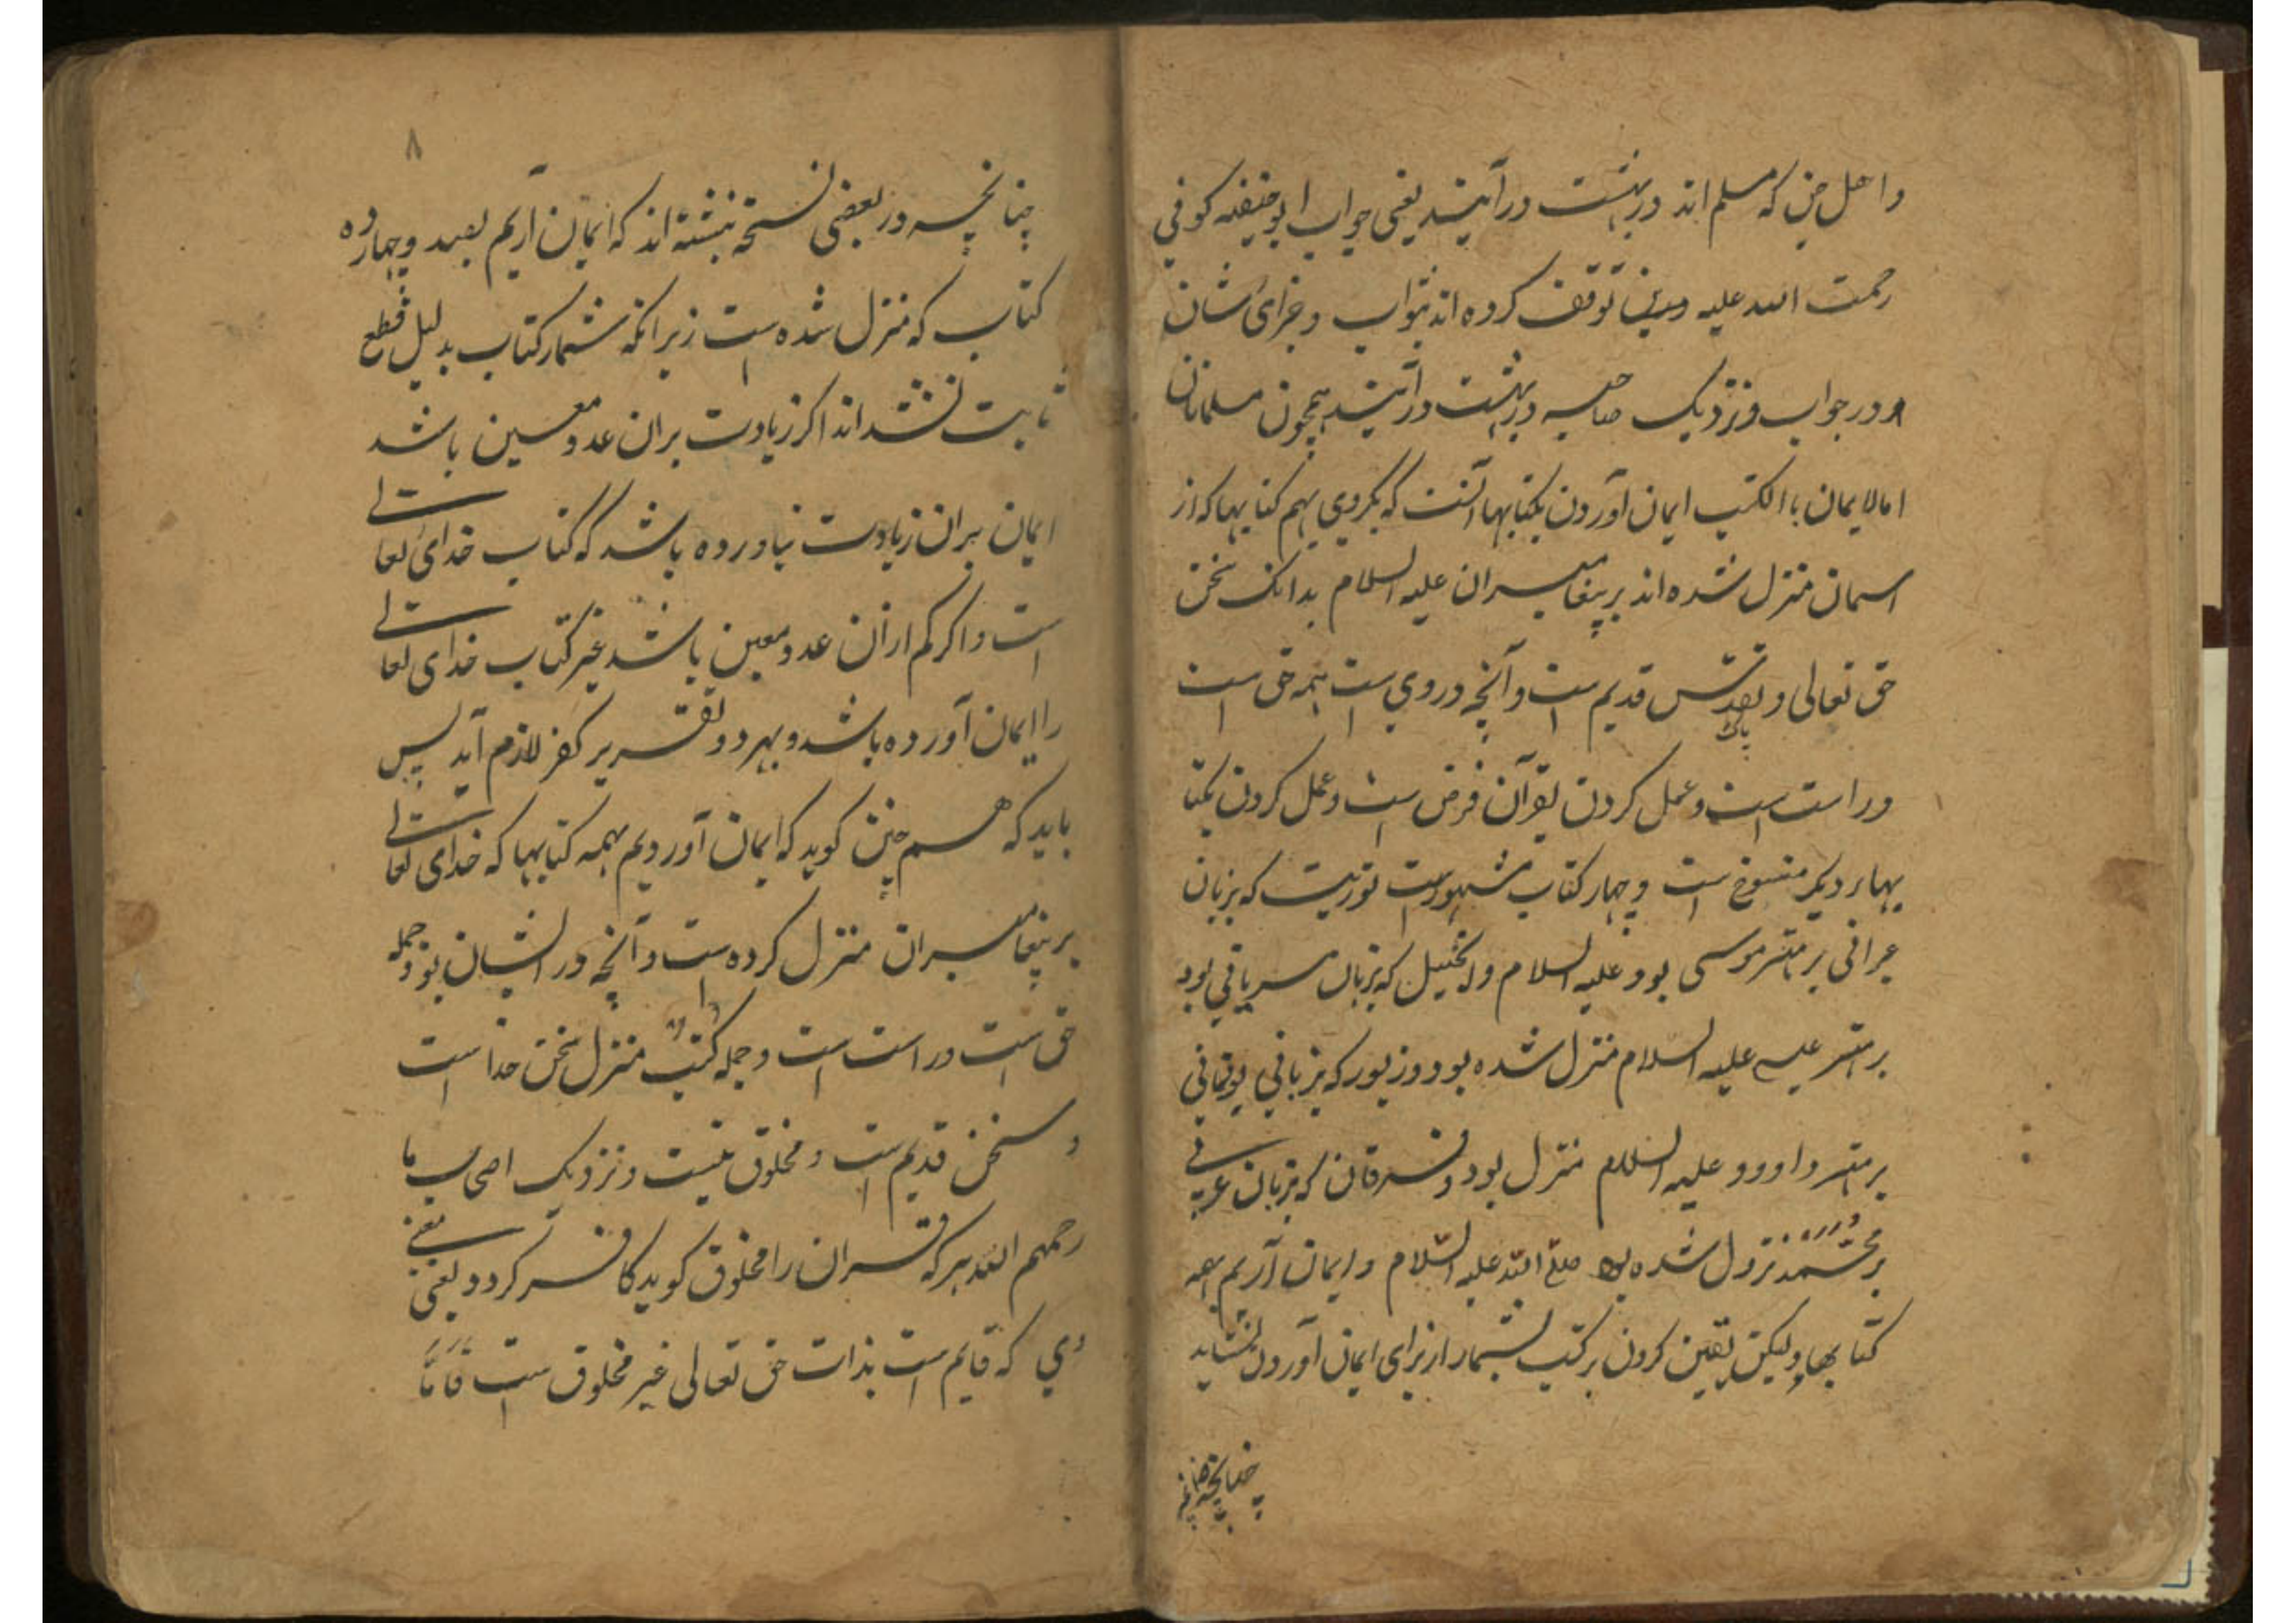 واهل جن که مسلم اند در بهشت در آیند یعنی جواب ابو حنیفه کوفی
رحمت الله علیه توقف کرده اند بثواب و جزای شان
ودر جواب ونزدیک صاحبیه در بهشت در آیند همچون مسلمانان
اما لایمان با الکتب ایمان آوردن بکتابها آنست که بکروی بهم کتابها که از
اسمان منزل شده اند بر پیغامبران علیه السلام بدانک سخن
حق تعالی وتقدس قدیم است وآنچه در وی است همه حق است
پاک
وراست است وعمل کردن بقرآن فرض است وعمل کردن بکتا
بهاء دیکر منسوخ است وچهار کتاب مشهور است توریت که بزبان
عبرانی بر مهتر موسی بود علیه السلام وانجیل که بزبان سریانی بود
بر مهتر عیسی علیه السلام منزل شده بود وزبور که بزبانی یونانی
بر مهتر داوود علیه السلام منزل بود وفرقان که بزبان عربی
بر محمد نزول شده بود صلی الله علیه السلام وایمان آریم بهمه
کتابها ولیکن یقین کردن بر کتب بشمار از برای ایمان آوردن نشاید
چنانچه
۸
چنانچه در بعضی نسخه نبشته اند که ایمان آریم بصد وچهارده
کتاب که منزل شده است زیرانکه شمار کتاب بدلیل قطع
ثابت نشد اند اکر زیادت بران عدد معین باشد
ایمان بران زیادت نیاورده باشد که کتاب خدای تعالی
است واکر کم ازان عدد معین باشد غیر کتاب خدای تعالی
را ایمان آورده باشد وبهر دو تقریر کفر لازم آید پس
باید که هم چنین کوید که ایمان آوردیم بهمه کتابها که خدای تعالی
بر پیغامبران منزل کرده است وآنچه در ایشان بود جمله
حق است وراست است وجمله کتب منزل سخن خدا است
وسخن قدیم است ومخلوق نیست ونزدیک اصحاب ما
رحمهم الله هر که قران را مخلوق کوید کافر کردد یعنی معنی
وی که قایم است بذات حق تعالی غیر مخلوق است فاما